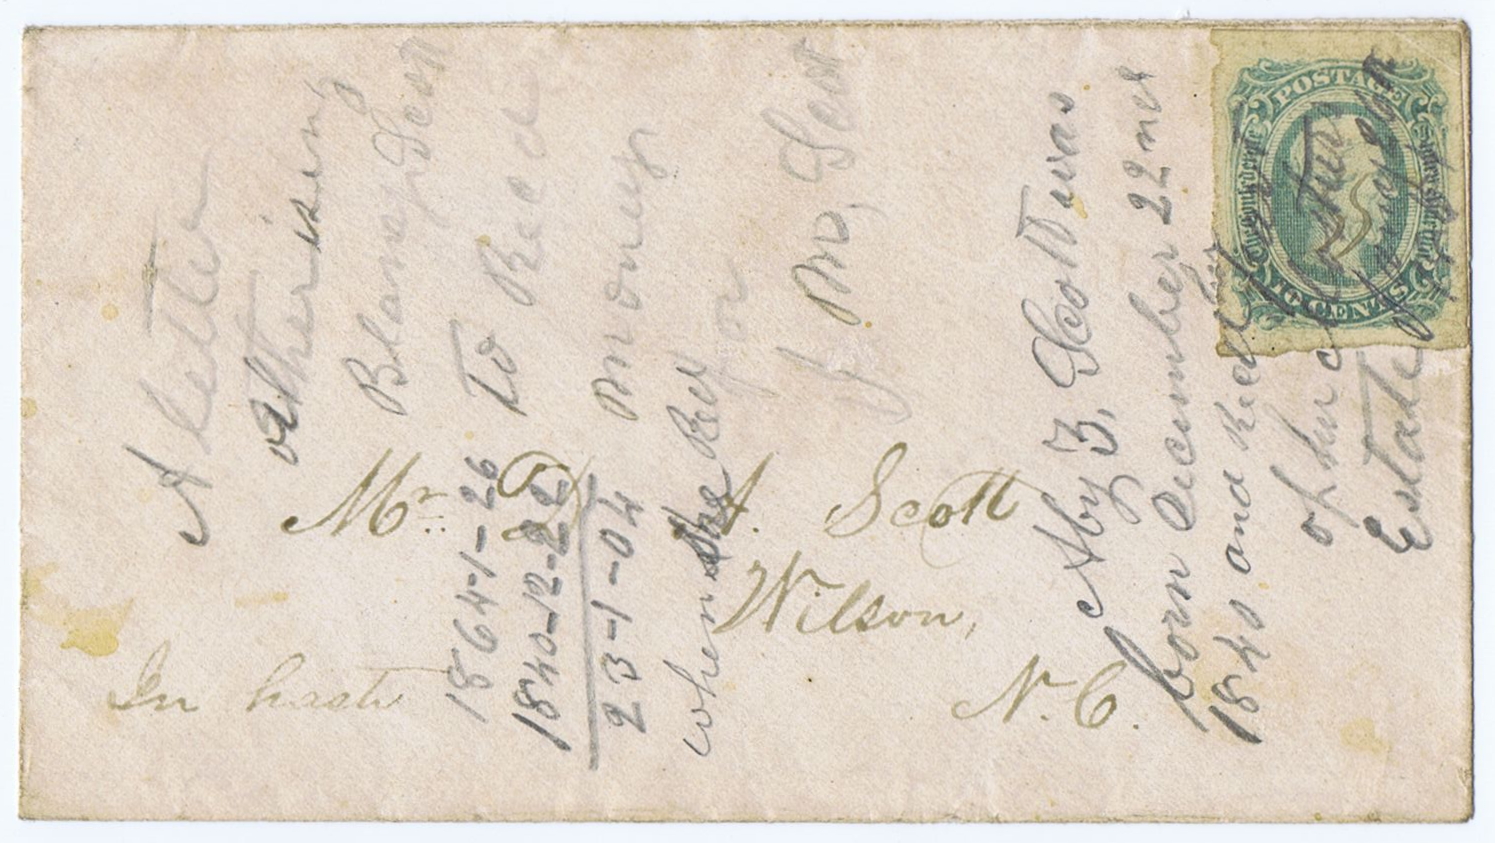 Mr. D. A. Scott
Wilson,
N. C.
In haste
A letter
atherising
Blaney Scott
To Recd
money
for
J. M, Scott
1864-1-26
1840-12-22
23-1-04
when she Red
Aby Z, Scott was
born December 22nd
1840 and Recd
of her
Estate
POSTAGE
The Confederate
States of America
10 CENTS